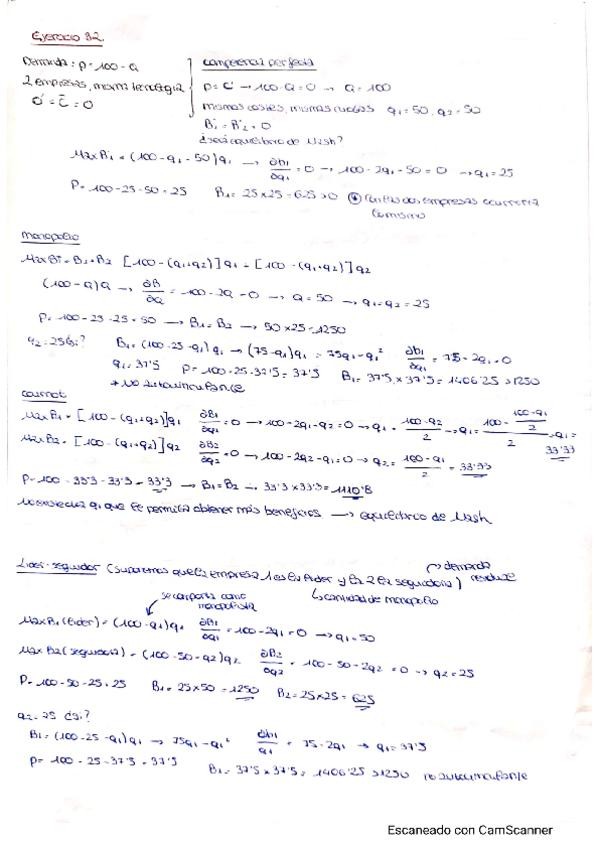 Ejercicio 3.2.
Demanda: p = 100 - Q
2 empresas, misma tecnología
C' = C̄ = 0
competencia perfecta
p = C' → 100 - Q = 0 → Q = 100
mismos costes, mismas cuotas q1 = 50, q2 = 50
B1 = B2 = 0
¿será equilibrio de Nash?
Máx B1 = (100 - q1 - 50) q1 → ∂B1/∂q1 = 0 → 100 - 2q1 - 50 = 0 → q1 = 25
P = 100 - 25 - 50 = 25 B1 = 25 x 25 = 625 > 0 empresas ocurriría
lo mismo
monopolio
Máx B = B1 + B2 [100 - (q1+q2)] q1 + [100 - (q1+q2)] q2
(100 - Q) Q → ∂B/∂Q = 100 - 2Q = 0 → Q = 50 → q1 = q2 = 25
P = 100 - 25 - 25 = 50 → B1 = B2 → 50 x 25 = 1250
q2 = 25 ¿q1? B1 = (100 - 25 - q1) q1 → (75 - q1) q1 = 75q1 - q1² ∂B1/∂q1 = 75 - 2q1 = 0
q1 = 37'5 P = 100 - 25 - 37'5 = 37'5 B1 = 37'5 x 37'5 = 1406'25 > 1250
* No autovinculante
Cournot
Máx B1 = [100 - (q1+q2)] q1 ∂B1/∂q1 = 0 → 100 - 2q1 - q2 = 0 → q1 = (100 - q2)/2 → q1 = (100 - (100 - q1)/2)/2 → q1 = 33'33
Máx B2 = [100 - (q1+q2)] q2 ∂B2/∂q2 = 0 → 100 - 2q2 - q1 = 0 → q2 = (100 - q1)/2 = 33'33
P = 100 - 33'3 - 33'3 = 33'3 → B1 = B2 = 33'3 x 33'3 = 1110'8
No existe una q1 que le permita obtener más beneficios → equilibrio de Nash
Líder-seguidor (suponemos que la empresa 1 es la líder y la 2 la seguidora) → demanda residual
se comporta como monopolista
↳ cantidad de monopolio
Máx B1 (líder) = (100 - q1) q1 ∂B1/∂q1 = 100 - 2q1 = 0 → q1 = 50
Máx B2 (seguidora) = (100 - 50 - q2) q2 ∂B2/∂q2 = 100 - 50 - 2q2 = 0 → q2 = 25
P = 100 - 50 - 25 = 25 B1 = 25 x 50 = 1250 B2 = 25 x 25 = 625
q2 = 25 ¿q1?
B1 = (100 - 25 - q1) q1 → 75q1 - q1² ∂B1/q1 = 75 - 2q1 → q1 = 37'5
P = 100 - 25 - 37'5 = 37'5 B1 = 37'5 x 37'5 = 1406'25 > 1250 no autovinculante
Escaneado con CamScanner